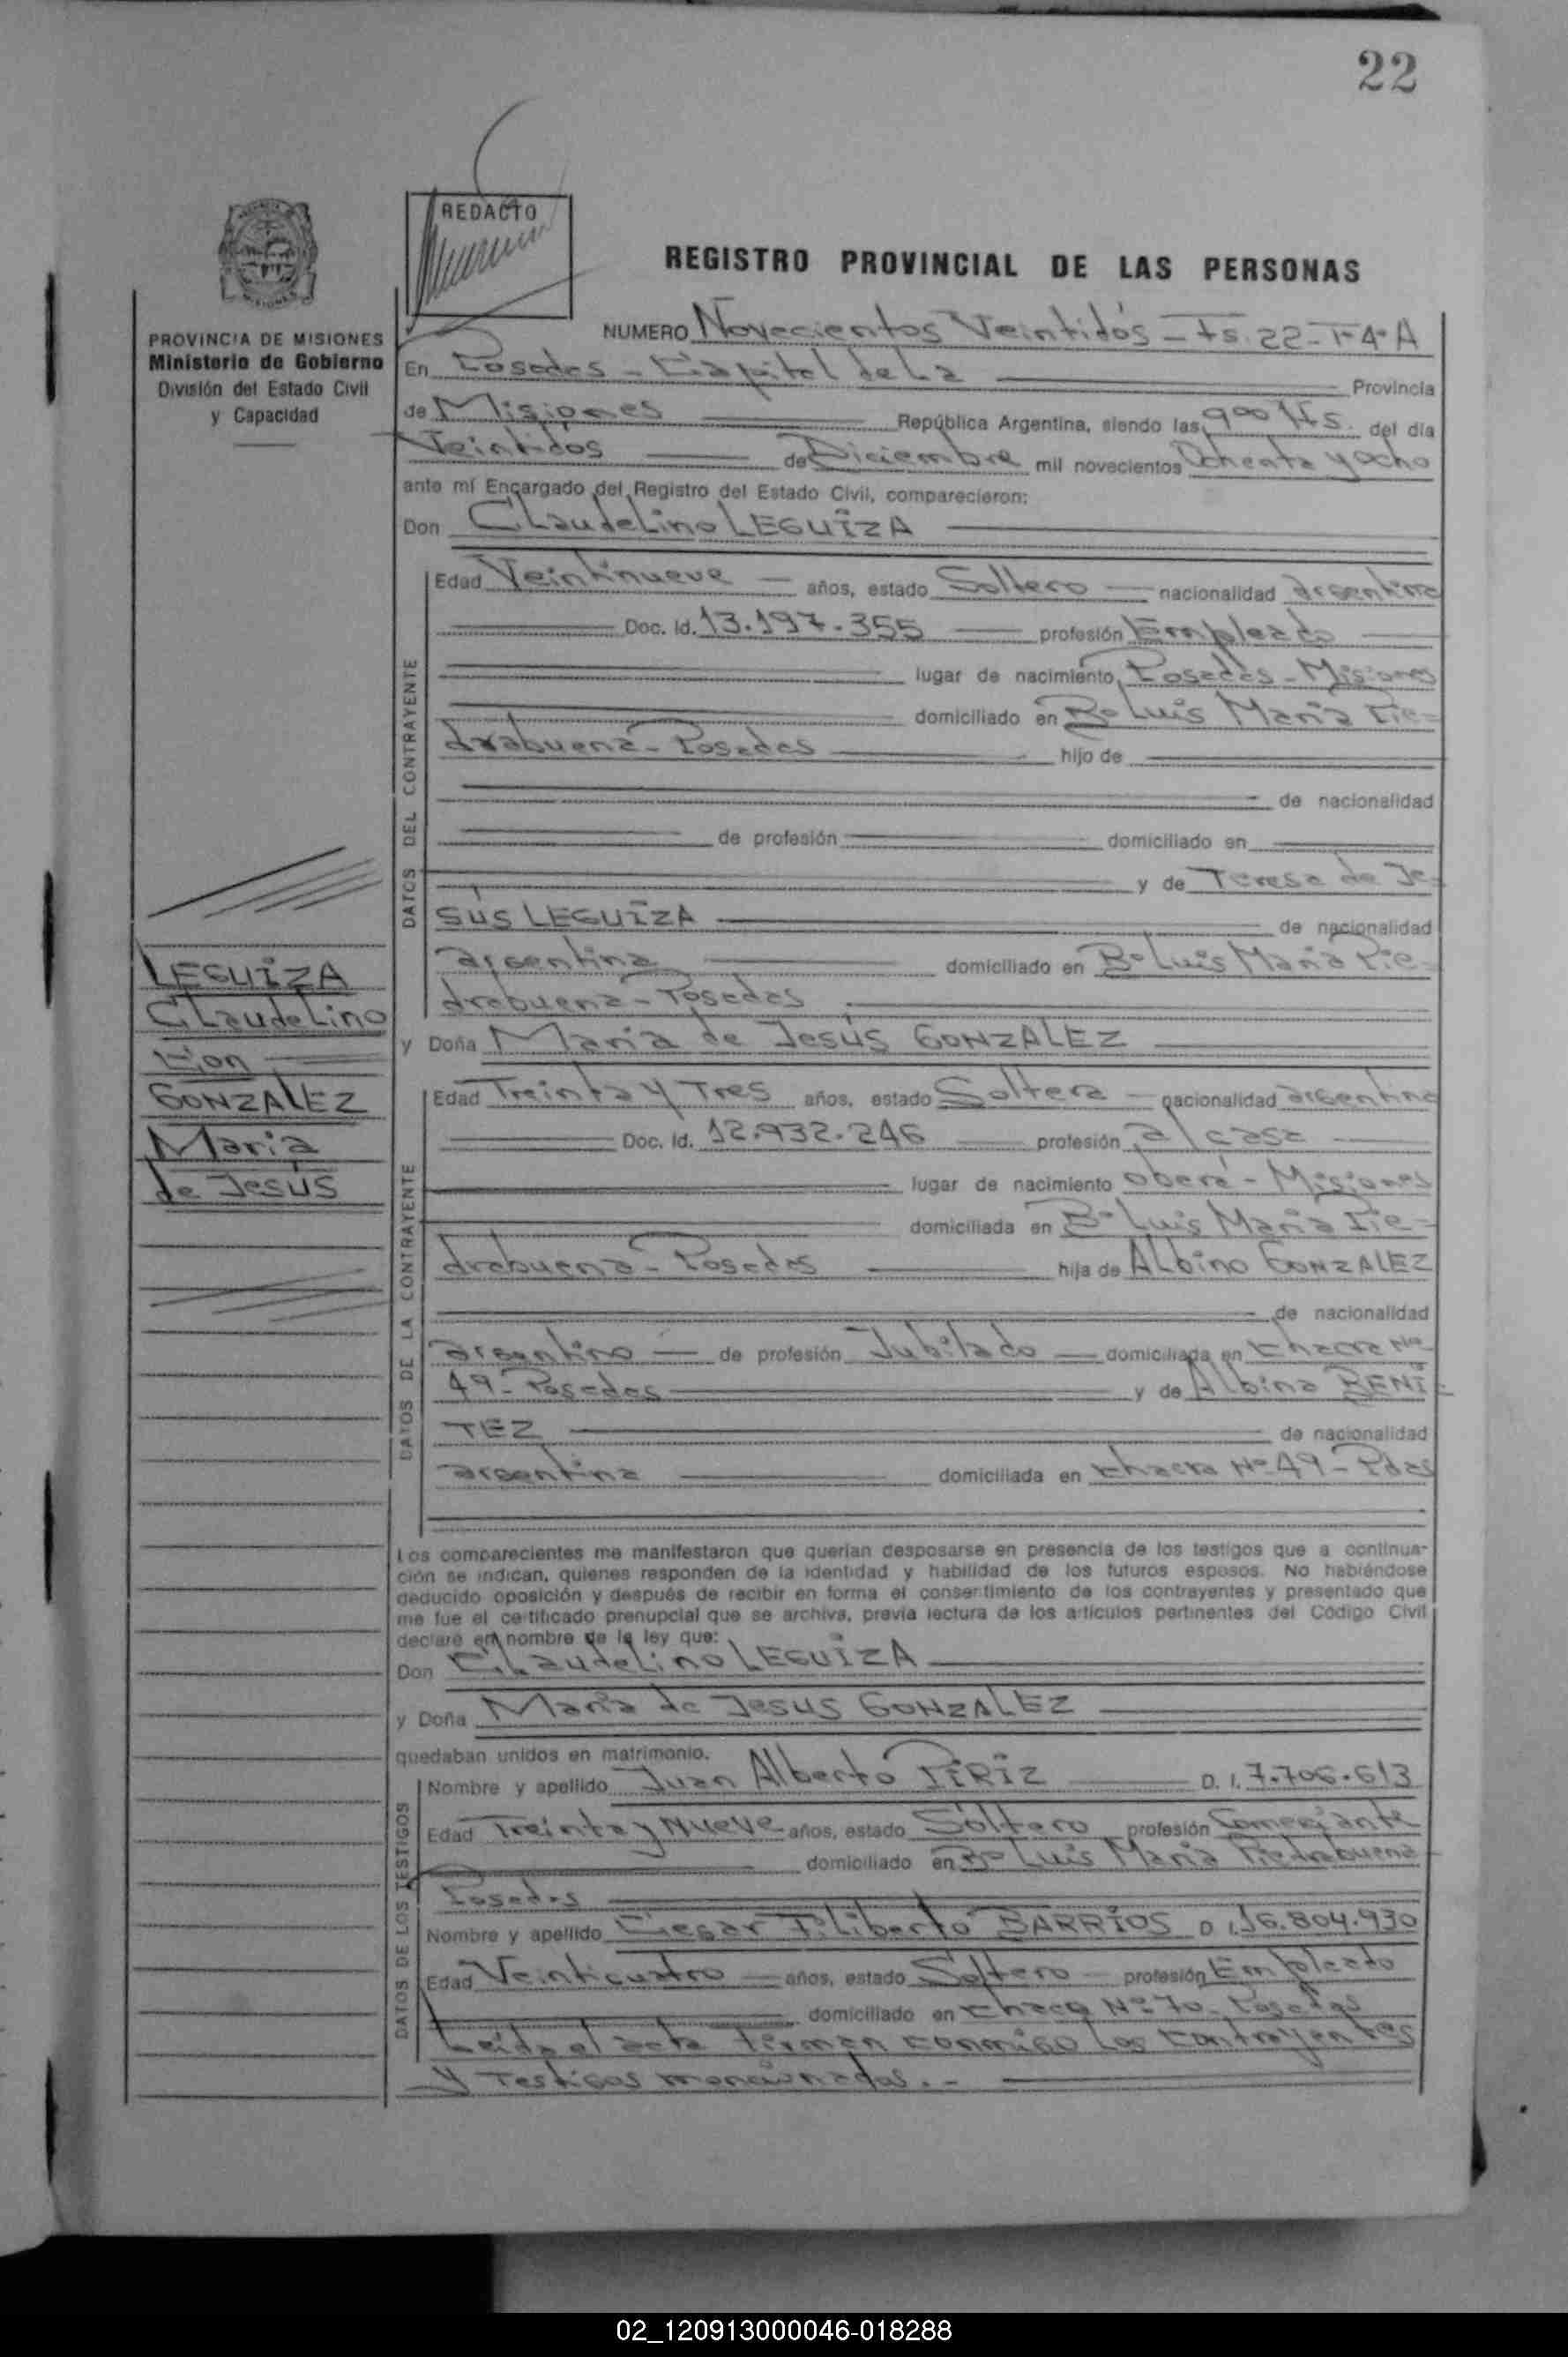 22
REDACTO
REGISTRO PROVINCIAL DE LAS PERSONAS
PROVINCIA DE MISIONES
Ministerio de Gobierno
División del Estado Civil
y Capacidad
NUMERO Novecientos Veintidós - Fs. 22 - Tº 4º A
En Posadas - Capital de La Provincia
de Misiones República Argentina, siendo las 9 00 Hs. del día
Veintidos de Diciembre mil novecientos Ochenta y ocho
ante mí Encargado del Registro del Estado Civil, comparecieron:
Don Claudelino LEGUIZA
DATOS DEL CONTRAYENTE
Edad Veintinueve años, estado Soltero nacionalidad argentina
Doc. Id. 13.197.355 profesión Empleado
lugar de nacimiento Posadas - Misiones
domiciliado en Bº Luis María Pie-
drabuena - Posadas hijo de
de nacionalidad
de profesión domiciliado en
y de Teresa de Je-
sús LEGUIZA de nacionalidad
argentina domiciliado en Bº Luis María Pie-
drabuena - Posadas
LEGUIZA
Claudelino
Con
GONZALEZ
María
de Jesús
y Doña María de Jesús GONZALEZ
DATOS DE LA CONTRAYENTE
Edad Treinta y Tres años, estado Soltera nacionalidad argentina
Doc. Id. 12.932.246 profesión a/ casa
lugar de nacimiento Oberá - Misiones
domiciliada en Bº Luis María Pie-
drabuena - Posadas hija de Albino GONZALEZ
de nacionalidad
argentino de profesión Jubilado domiciliada en Chacra Nº
49 - Posadas y de Albina BENI-
TEZ de nacionalidad
argentina domiciliada en Chacra Nº 49 - Pdas
Los comparecientes me manifestaron que querían desposarse en presencia de los testigos que a continua-
ción se indican, quienes responden de la identidad y habilidad de los futuros esposos. No habiéndose
deducido oposición y después de recibir en forma el consentimiento de los contrayentes y presentado que
me fue el certificado prenupcial que se archiva, previa lectura de los artículos pertinentes del Código Civil
declaro en nombre de la ley que:
Don Claudelino LEGUIZA
y Doña María de Jesus GONZALEZ
quedaban unidos en matrimonio.
DATOS DE LOS TESTIGOS
Nombre y apellido Juan Alberto PIRIZ D. I. 7.706.613
Edad Treinta y Nueve años, estado Soltero profesión Comerciante
domiciliado en Bº Luis María Piedrabuena
Posadas
Nombre y apellido Cesar Filiberto BARRIOS D. I. 16.804.930
Edad Veinticuatro años, estado Soltero profesión Empleado
domiciliado en Chacra Nº 70 - Posadas
Leida el acta firman conmigo los contrayentes
y Testigos mencionados. -
02_120913000046-018288